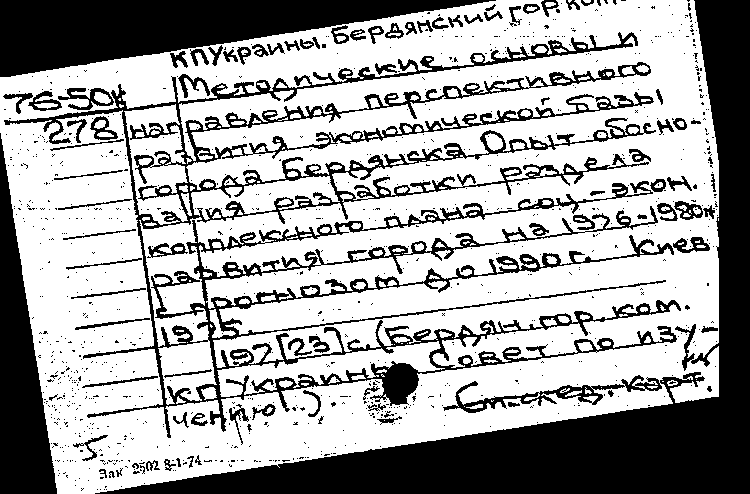 КПУкраины. Бердянский гор. ком.
76-50к
278
Методические основы и
направления перспективного
развития экономической базы
города Бердянска. Опыт обосно-
вания разработки раздела
комплексного плана соц.-экон.
развития города на 1976-1980гг
с прогнозом до 1990г. Киев
1975.
197,[23]с. (Бердян. гор. ком.
КП Украины. Совет по изу-
чению...).
См. след. карт.
5
Зак 2502 8-1-74